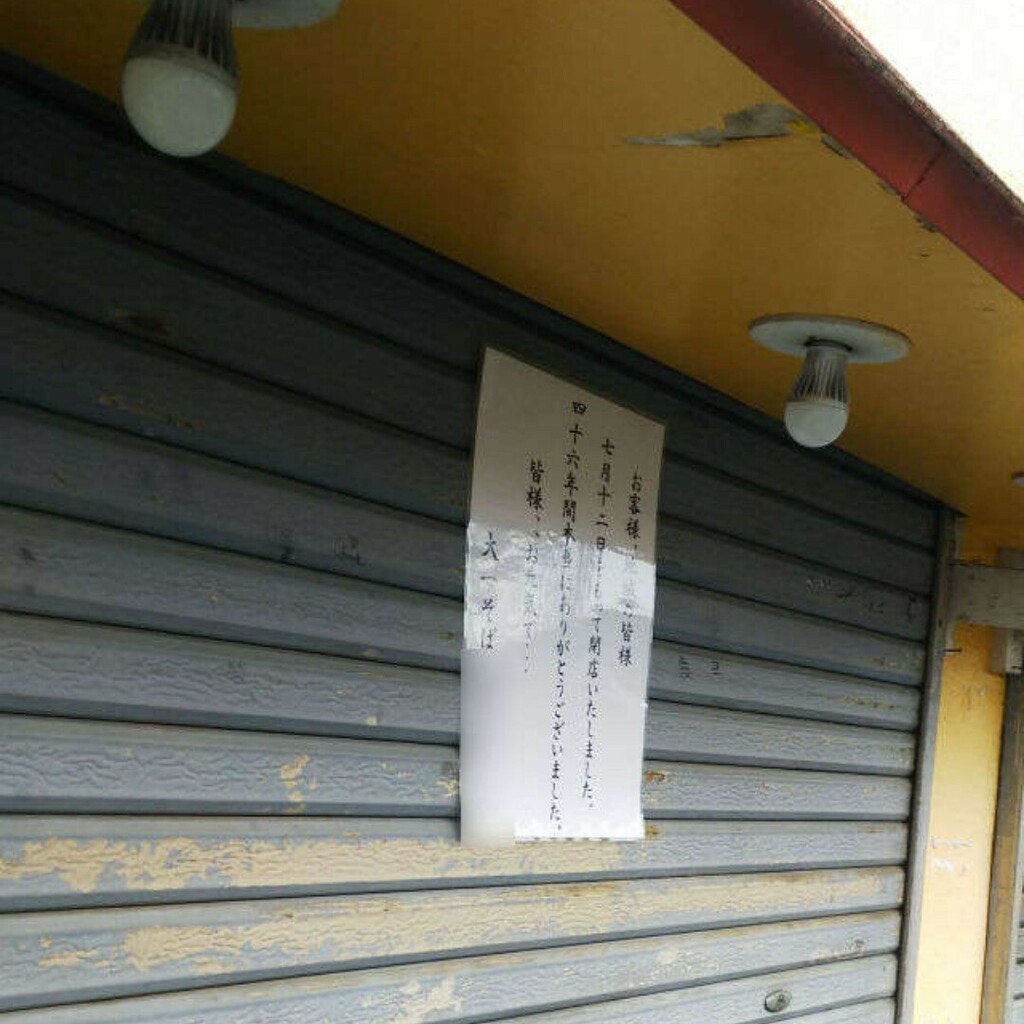 お客様 皆様
七月十二日をもって閉店いたしました。
四十六年間本当にありがとうございました。
皆様、お元気で...
大一そば